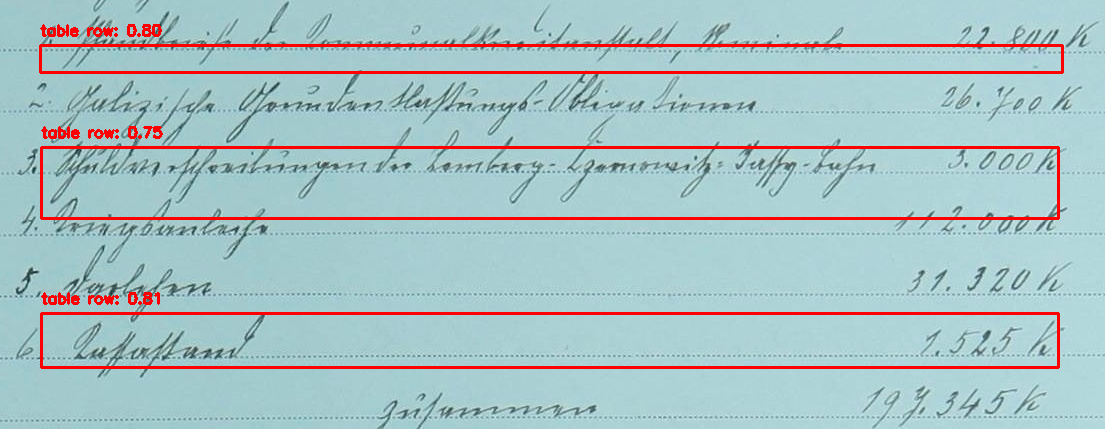 table row: 0.80
1. Pfandbriefe der Kommunalkreditanstalt, Nominale 22.800 K
2. Galizische Grundentlastungs-Obligationen 26.700 K
table row: 0.75
3. Schuldverschreibungen der Lemberg-Czernowitz-Jassy-bahn 3.000 K
4. Kriegsanleihe 112.000 K
5. Darlehen 31.320 K
table row: 0.81
6. Kassastand 1.525 K
zusammen 197.345 K